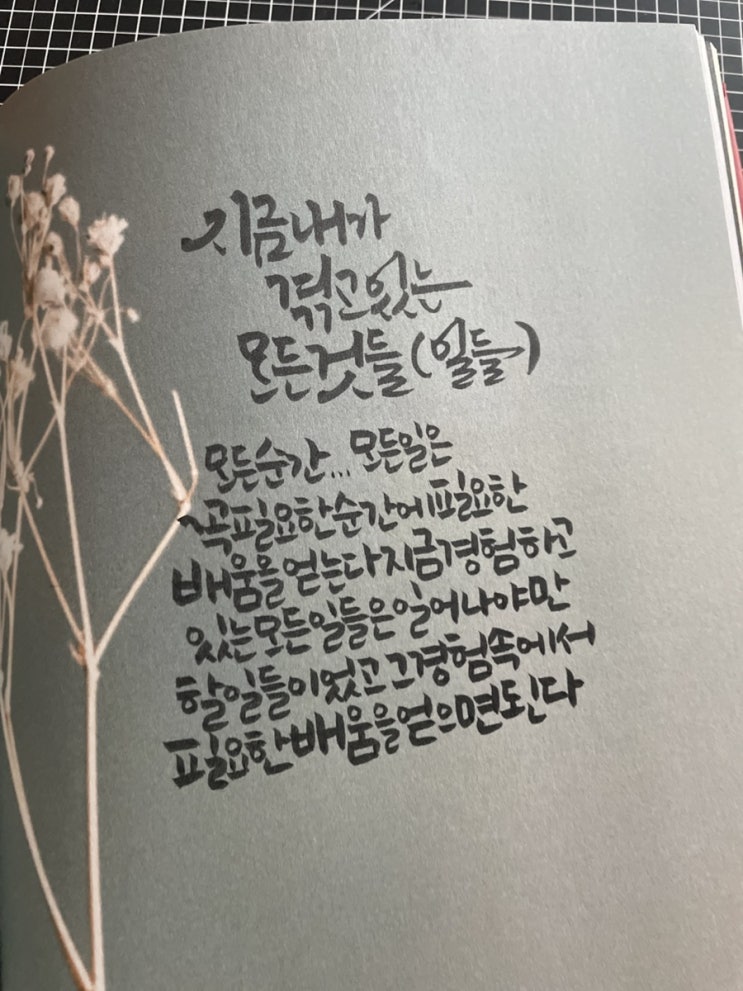 지금 내가
겪고 있는
모든 것들 (일들)
모든 순간... 모든 일은
꼭 필요한 순간에 필요한
배움을 얻는다 지금 경험하고
있는 모든 일들은 일어나야만
할 일들이었고 그 경험 속에서
필요한 배움을 얻으면 된다